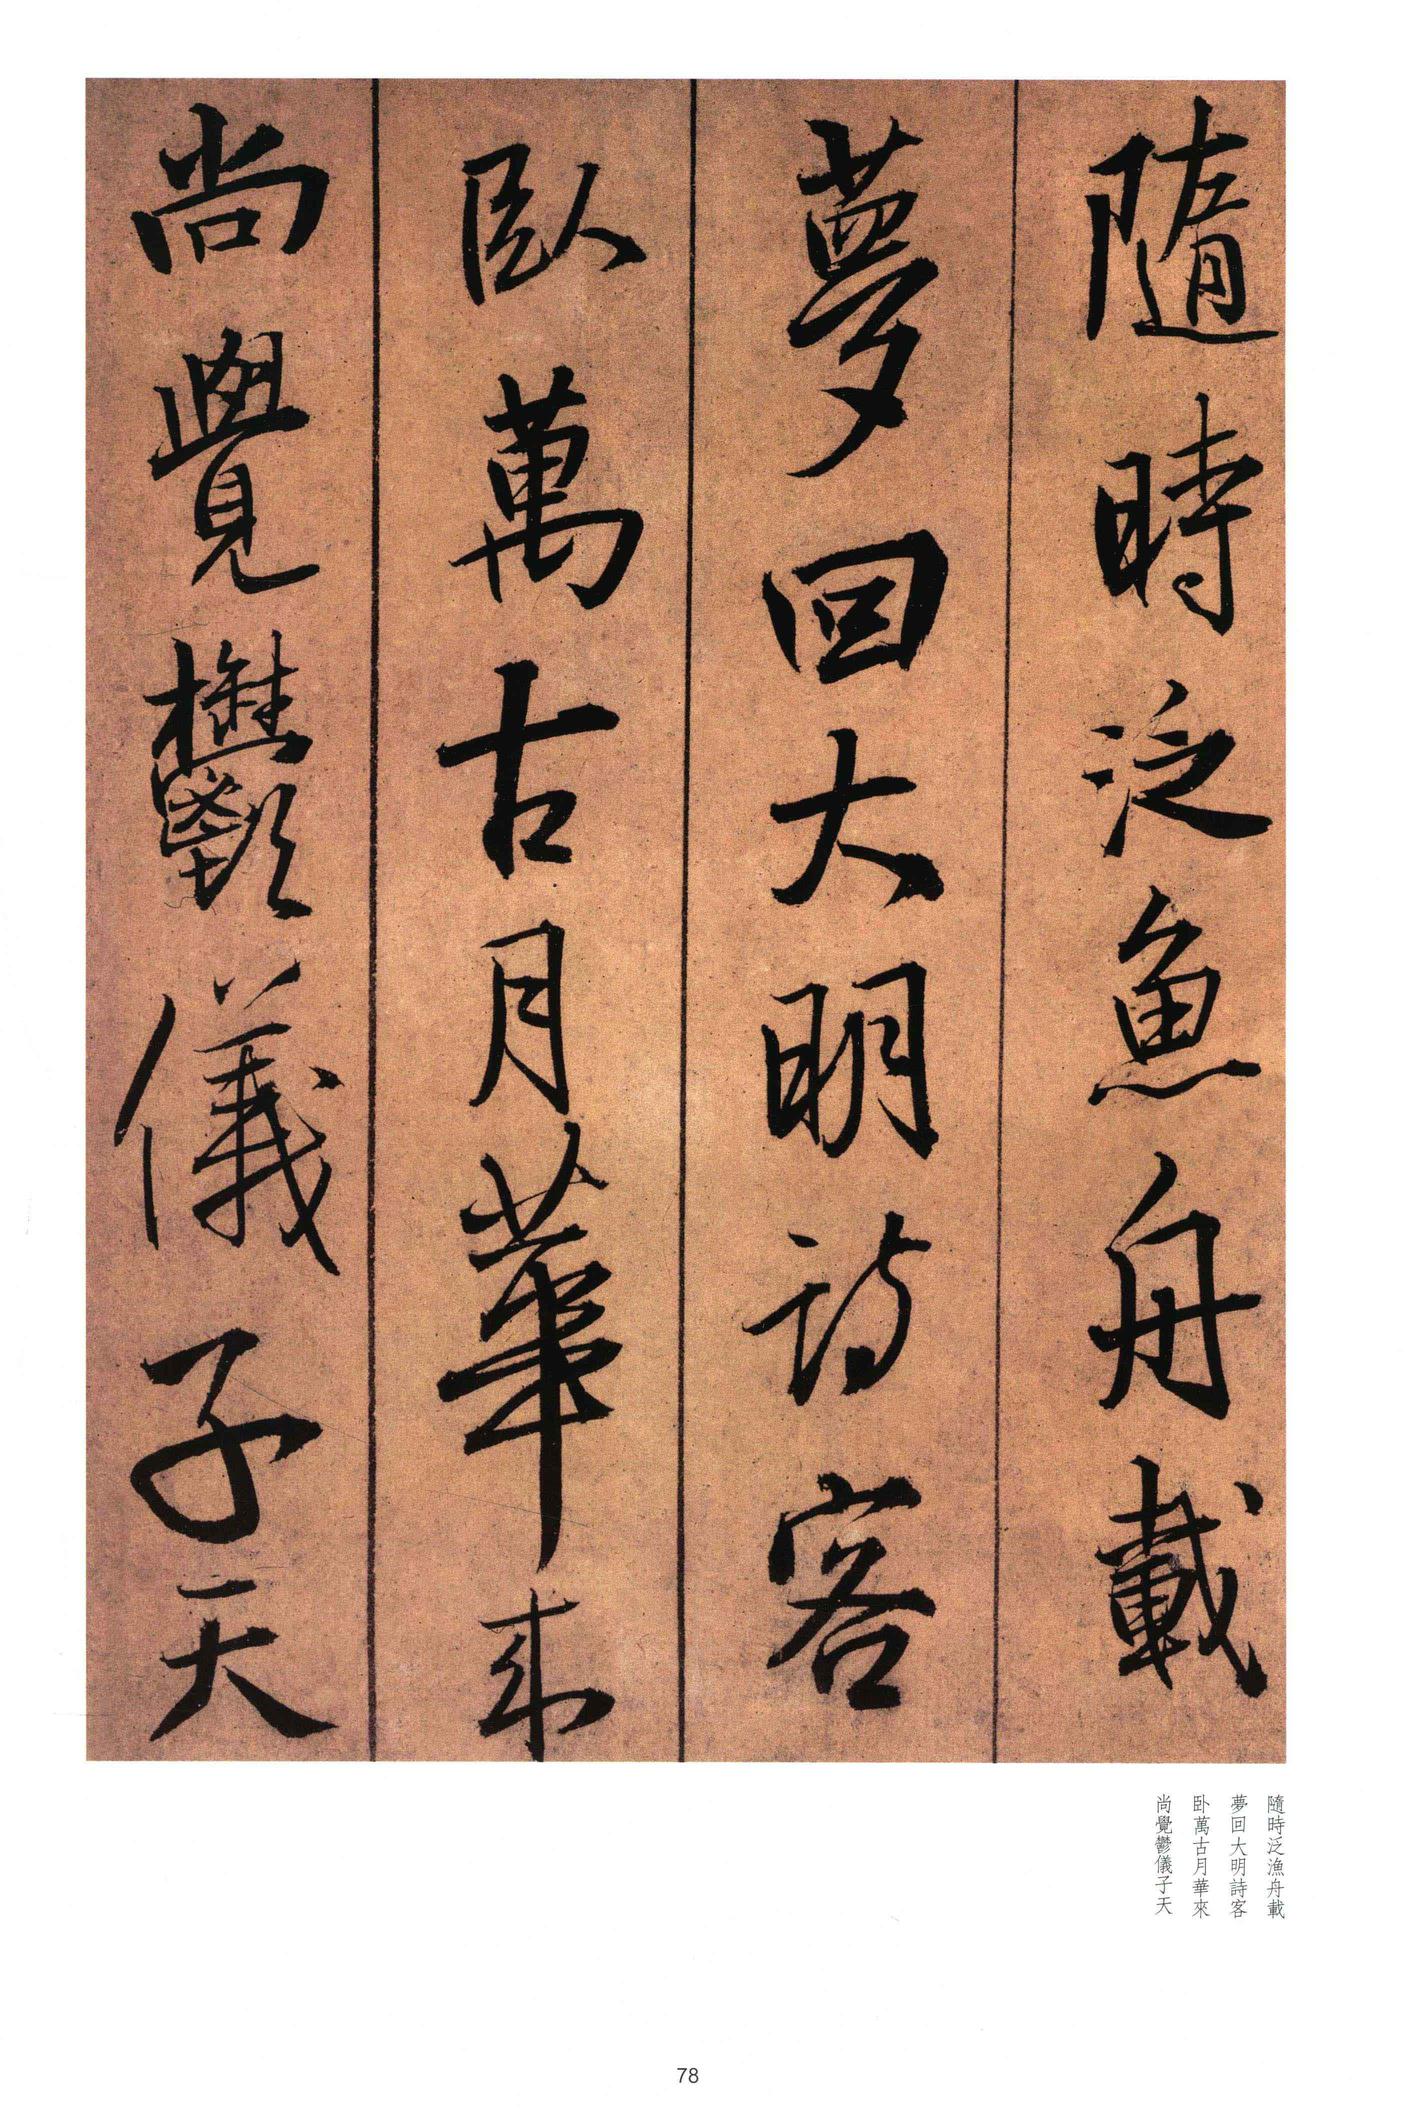 隨時泛魚舟載
夢回大明詩客
臥萬古月華來
尚覺鬱儀子天
隨時泛漁舟載
夢回大明詩客
卧萬古月華來
尚覺鬱儀子天
78